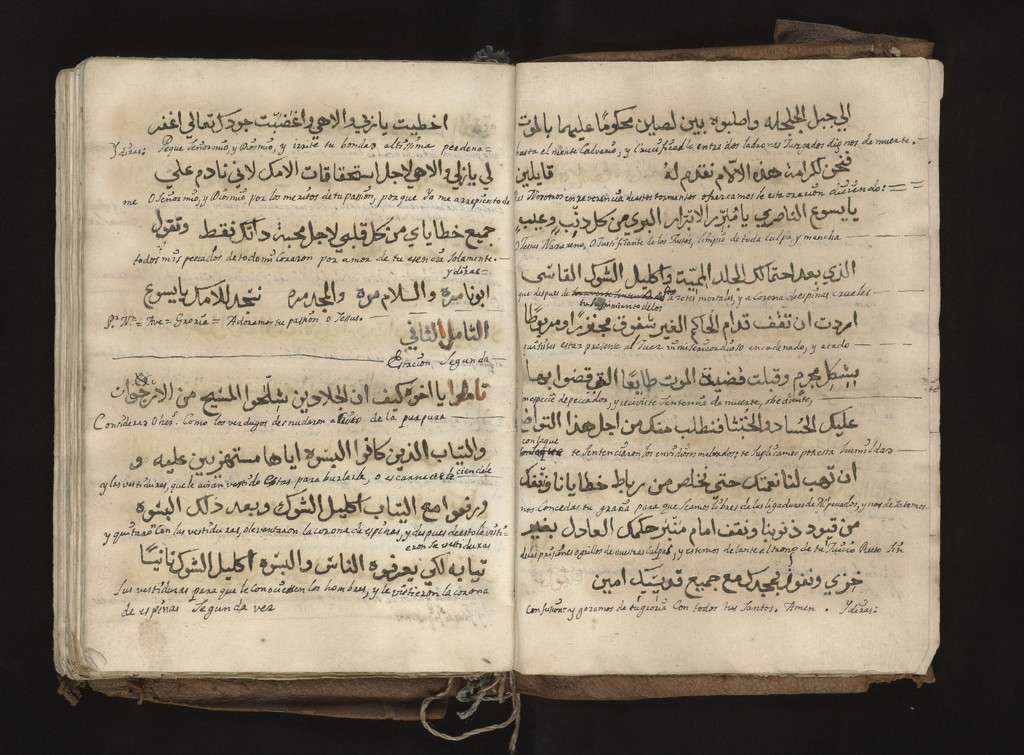 اخطيت يا ربي والاهي واغضبت جودك تعالي اغفر
Y diras: Peque Señormio, y Diosmio, y irrite tu bondad altissima perdona=
لي يا ربي والاهي لاجل استحقاقات الامك لاني نادم علي
me O Señormio, y Diosmio, por los meritos de tu passion, porque Yo me arrepiento de
جميع خطاياي من كل قلبي لاجل محبة ذاتك فقط وتقول
todos mis pecados de todo mi corazon por amor de tu esencia solamente.
y diras=
ابونا مرة والسلام مرة والمجد مرة نسجد للامك يا يسوع
Pr. Nr.= Ave= Gloria= Adoramos tu passion o Jesus.
التامل الثاني
Estacion Segunda
تاملوا يا اخوة كيف ان الجلادين شلحوا المسيح من الارجوان
Considerad O her.s Como los verdugos desnudaron a Xpto de la purpura
والتياب الذين كانوا البسوه اياها مستهزيين عليه و
y las vestiduras, que le avian vestido para burlarle, o escarnecerle
ورفعوا مع التياب اكليل الشوك وبعد ذلك البسوه
y quitaron Con las vestiduras, o levantaron la corona de espinas, y despues de esto le visti=
eron sus vestiduras
تيابه لكي يعرفوه الناس والبسوه اكليل الشوك تانيا
sus vestiduras para que le conociessen los hombres, y le vistieron la corona
de espinas Segunda vez
الي جبل الجلجله واصلبوه بين لصين محكوما عليهما بالموت
hasta el monte Calvario, y Crucificadle entre dos ladrones Juzgados dignos de muerte.
فنحن كرامة هذه الالام نقدم له قايلين
Nosotros en reverencia destos tormentos ofrezcamosle esta oracion diciendo:=
يا يسوع الناصري يا مبرر الابرار البري من كل ذنب وعيب
O Jesus Nazareno, O Justificante de los Justos, limpio de toda culpa, y mancha
الذي بعد احتمالك الجلد المميتة واكليل الشوك القاسي
que despues de azotes mortales, y a corona de espinas crueles
tu sufrimiento de los
اردت ان تقف قدام الحاكم الغير شفوق مجنزرا ومربوطا
quisistes estar presente al Juez inmisericordioso encadenado, y atado
بشكل مجرم وقبلت قضية الموت طايعا التي قضوا بها
en especie de pecador, y recibiste Sentencia de muerte, obediente,
عليك الحساد والخبثا فنطلب منك من اجل هذا التواضع
con la que
te Sentenciaron los envidiosos malvados; te suplicamos por esta humildad
ان تهب لنا نعمتك حتي نخلص من رباط خطايانا ونفك
nos Concedas tu gracia para que seamos libres de las ligaduras de Nr.os pecados, y nos desatemos
من قيود ذنوبنا ونقف امام منبر حكمك العادل بغير
de las prisiones o grillos de nuestras culpas, y estemos delante el trono de tu Juicio Recto Sin
خزي ونفوز بمجدك مع جميع قديسيك امين
confusion y gozemos de tu gloria Con todos tus Santos. Amen. Y diras: